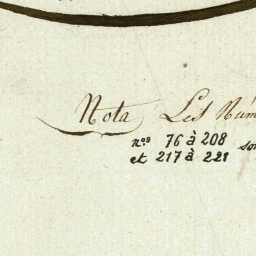 Nota Les Num
nos 76 à 208
et 217 à 221 son